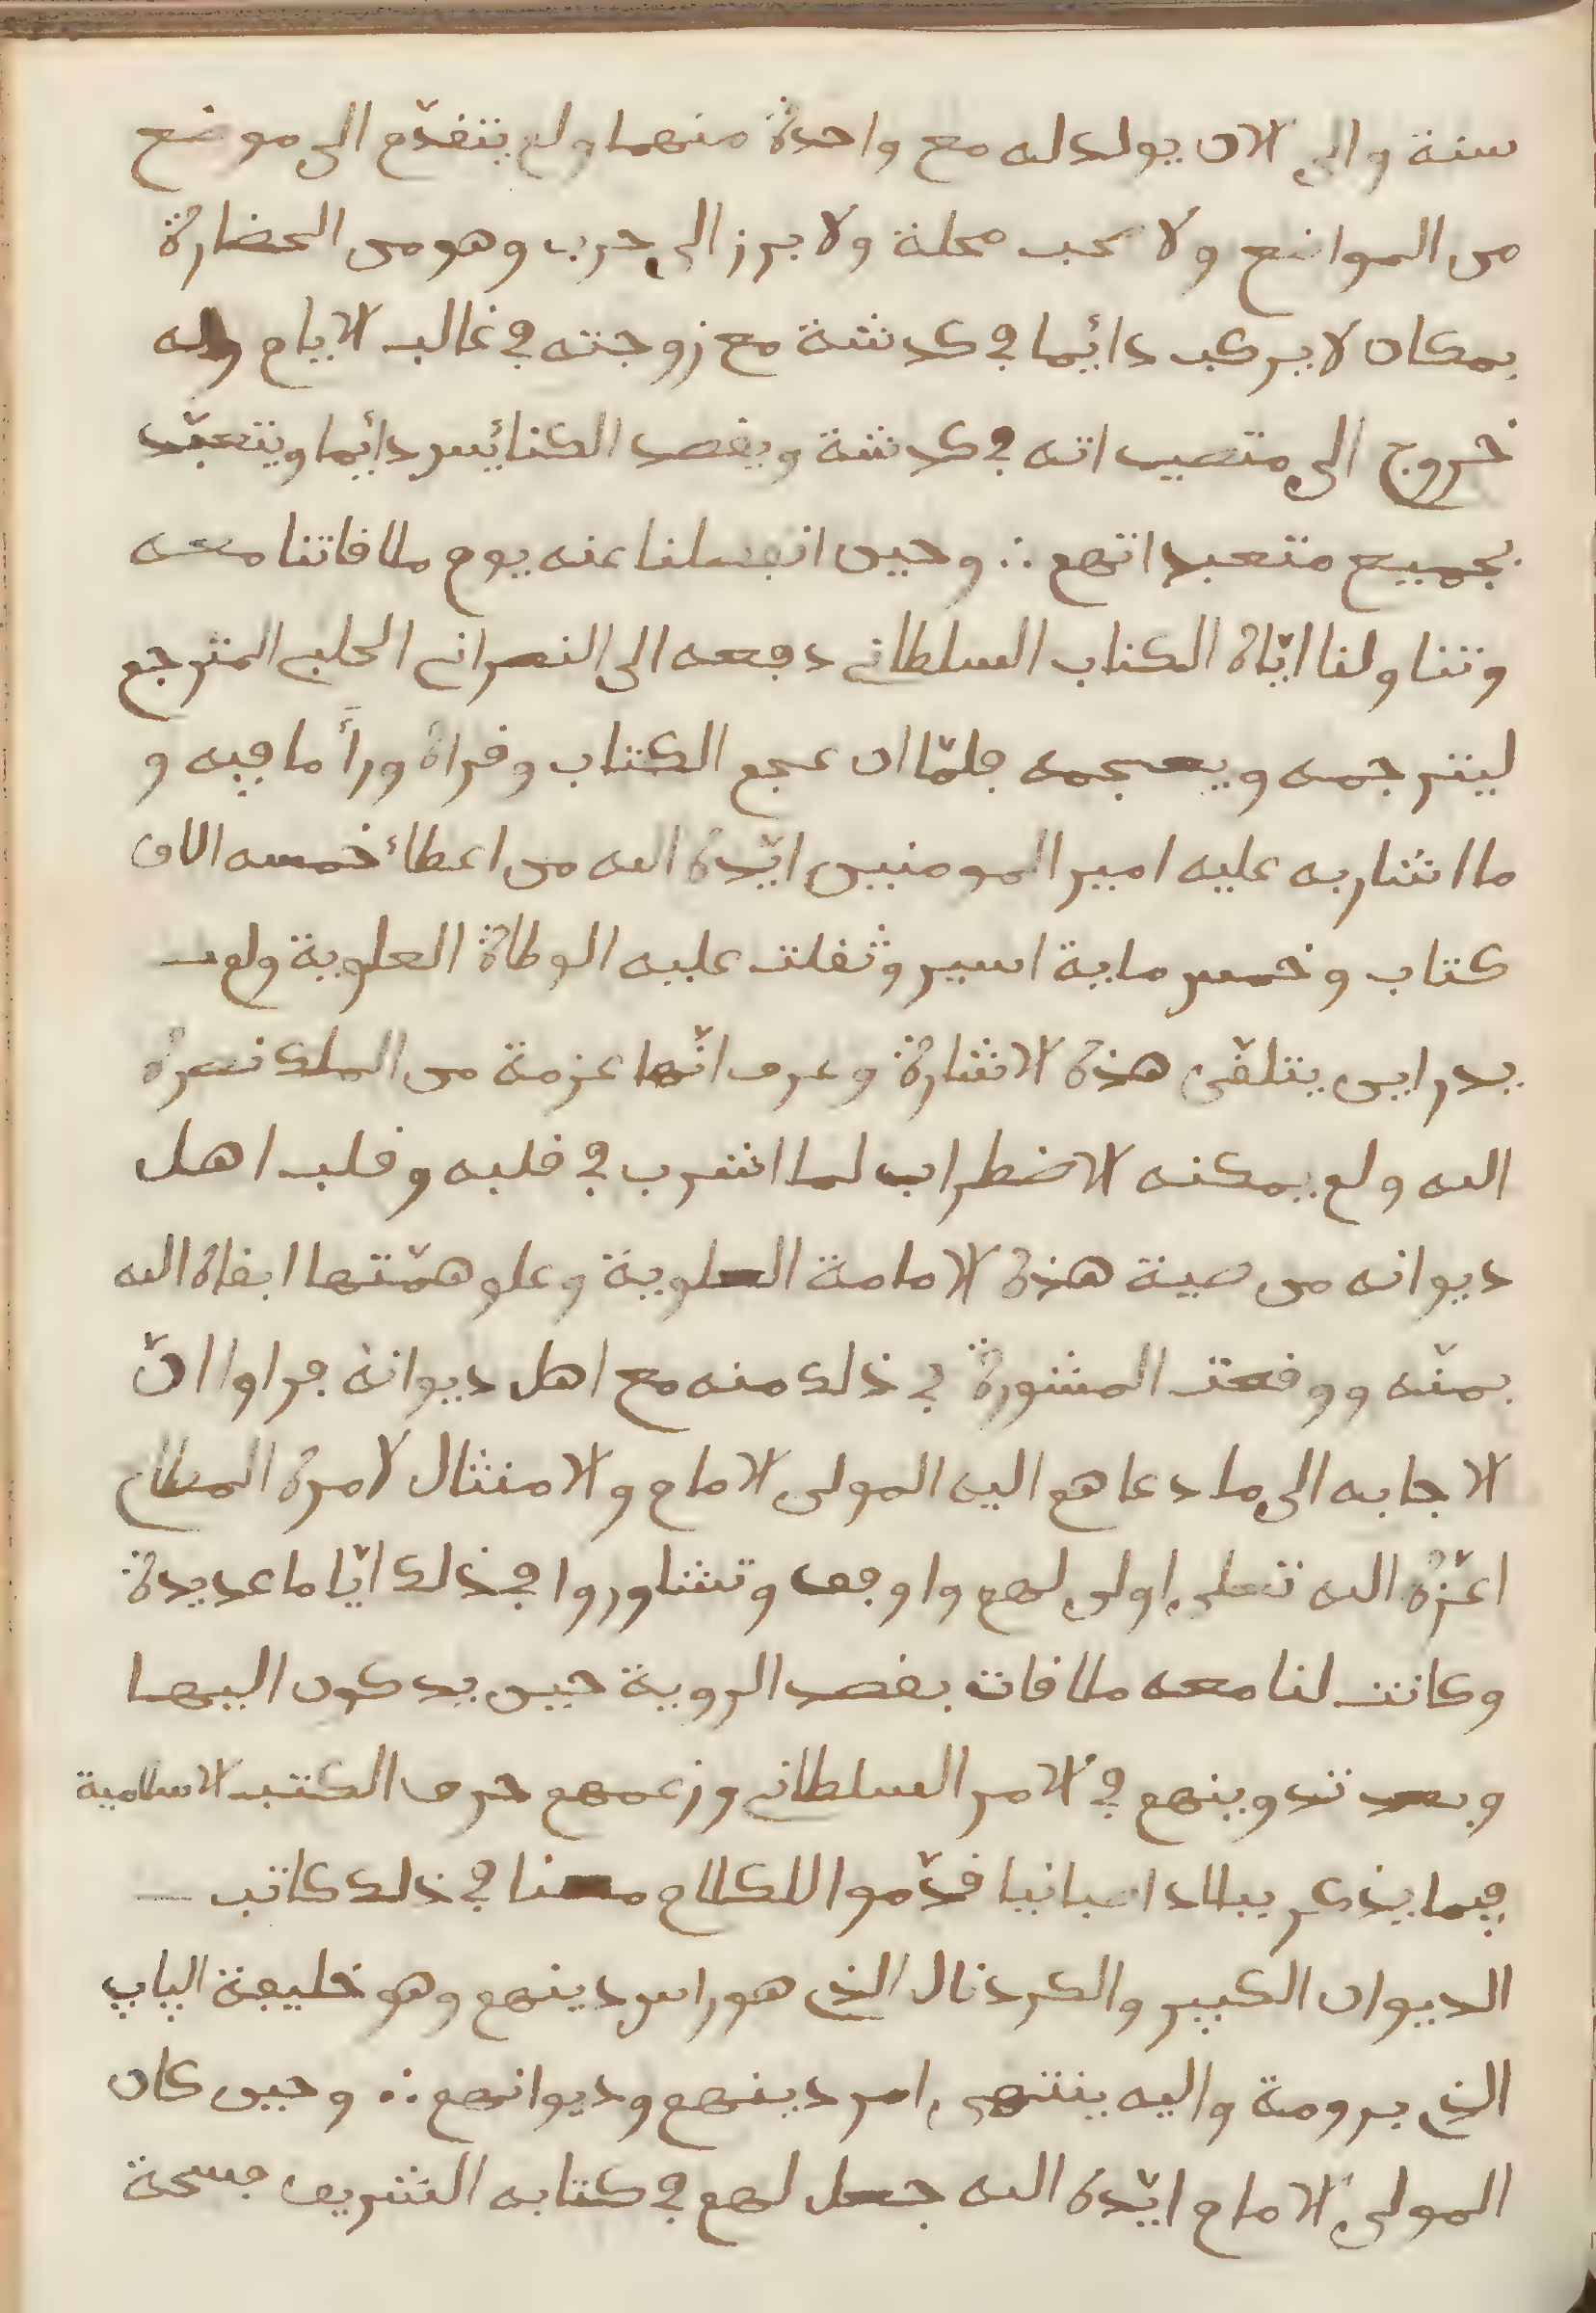 سنة والى الان يولد له مع واحدة منهما ولم يتقدّم الى موضع
من المواضع ولا صحب محلة ولا برز الى حرب وهو من الحضارة
بمكان لا يركب دائما في كدشة مع زوجته في غالب الايام وله
خروج الى متصيداته في كدشة ويقصد الكنائيس دائما ويتعبّد
بجميع متعبداتهم ∴ وحين انفصلنا عنه يوم ملاقاتنا معه
وتناولنا ايّاه الكتاب السلطاني دفعه الى النصراني الحلبي المترجم
ليترجمه ويعجمه فلمّا ان عجم الكتاب وقراه ورأ ما فيه و
ما اشار به عليه امير المومنين ايّده الله من اعطاء خمسه الاف
كتاب وخمس ماية اسير وثقلت عليه الوطاة العلوية ولم
يدر اين يتلقّى هذه الاشارة وعرف انّها عزمة من الملك نصره
الله ولم يمكنه الاضطراب لما اشرب في قلبه وقلب اهل
ديوانه من صية هذه الامامة العلوية وعلو همّتها ابقاه الله
بمنّه ووقعت المشورة في ذلك منه مع اهل ديوانه فراوا انّ
الاجابه الى ما دعاهم اليه المولى الامام والامتثال لامره المطاع
اعزّه الله تعلى اولى لهم واوفق وتشاوروا في ذلك ايّاما عديدة
وكانت لنا معه ملاقات بقصد الروية حين يدعون اليها
وبعد تدوينهم في الامر السلطاني وزعمهم حرق الكتب الاسلامية
فيما يذكر ببلاد اصبانيا قدّموا للكلام معنا في ذلك كاتب
الديوان الكبير والكردنال الذي هو راس دينهم وهو خليفة الپاپ
الذي برومة واليه ينتهي امر دينهم وديوانهم ∴ وحين كان
المولى الامام ايّده الله جعل لهم في كتابه الشريف فسحة